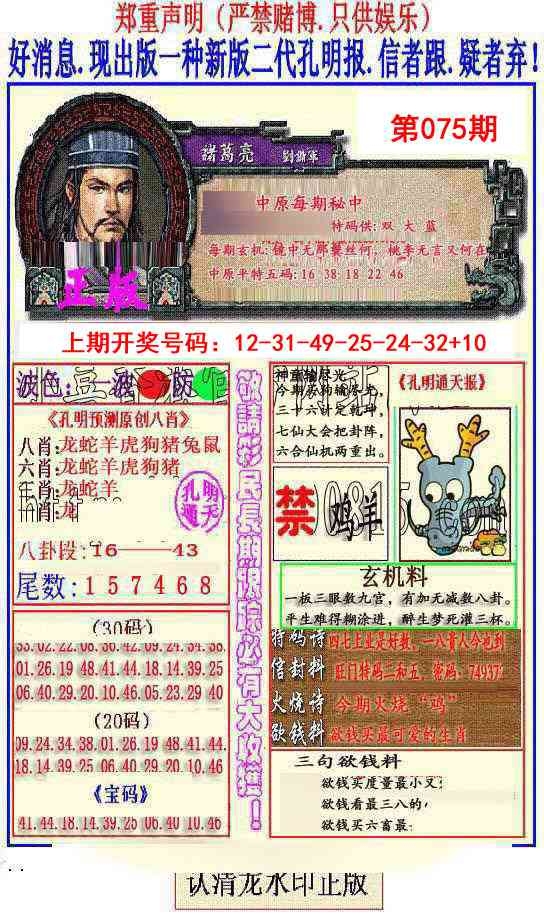 郑重声明（严禁赌博.只供娱乐）
好消息.现出版一种新版二代孔明报.信者跟.疑者弃！
第075期
諸葛亮
中原每期秘中
特码供:双 大 蓝
每期玄机:镜中无那鬓丝何,桃李无言又何在
中原平特五码:16 38 18 22 46
正版
上期开奖号码：12-31-49-25-24-32+10
波色：
《孔明预测原创八肖》
八肖:龙蛇羊虎狗猪兔鼠
六肖:龙蛇羊虎狗猪
龙蛇羊
肖:龙
孔明
通天
八卦段:16——43
尾数:157468
(30码)
33.02.22.08.30.42.09.24.34.38.
01.26.19 48.41.44.18.14.39.25
06.40.29.20.10.46 05.23.29.40
(20码)
09.24.34.38.01.26.19 48.41.44.
18.14.39.25 06.40.29.20.10.46
《宝码》
41.44.18.14.39.25 06.40 10.46
敬請彩民長期跟踪必有大收獲！
今期恶狗输尽光,
三十六计定乾坤,
七仙大会把卦阵,
六合仙机两重出。
《孔明通天报》
禁
鸡羊
玄机料
一板三眼数九宫，有加无减数八卦。
平生难得糊涂进，醉生梦死灌三杯。
特码诗 四七上业是好数，一八贵人今也到
信封料 旺门特码二和五，密码：749372
火烧诗 今期火烧“鸡”
欲钱料 欲钱买最可爱的生肖
三句欲钱料
欲钱买度量最小又
欲钱看最三八的
欲钱买六畜最
认清龙水印正版